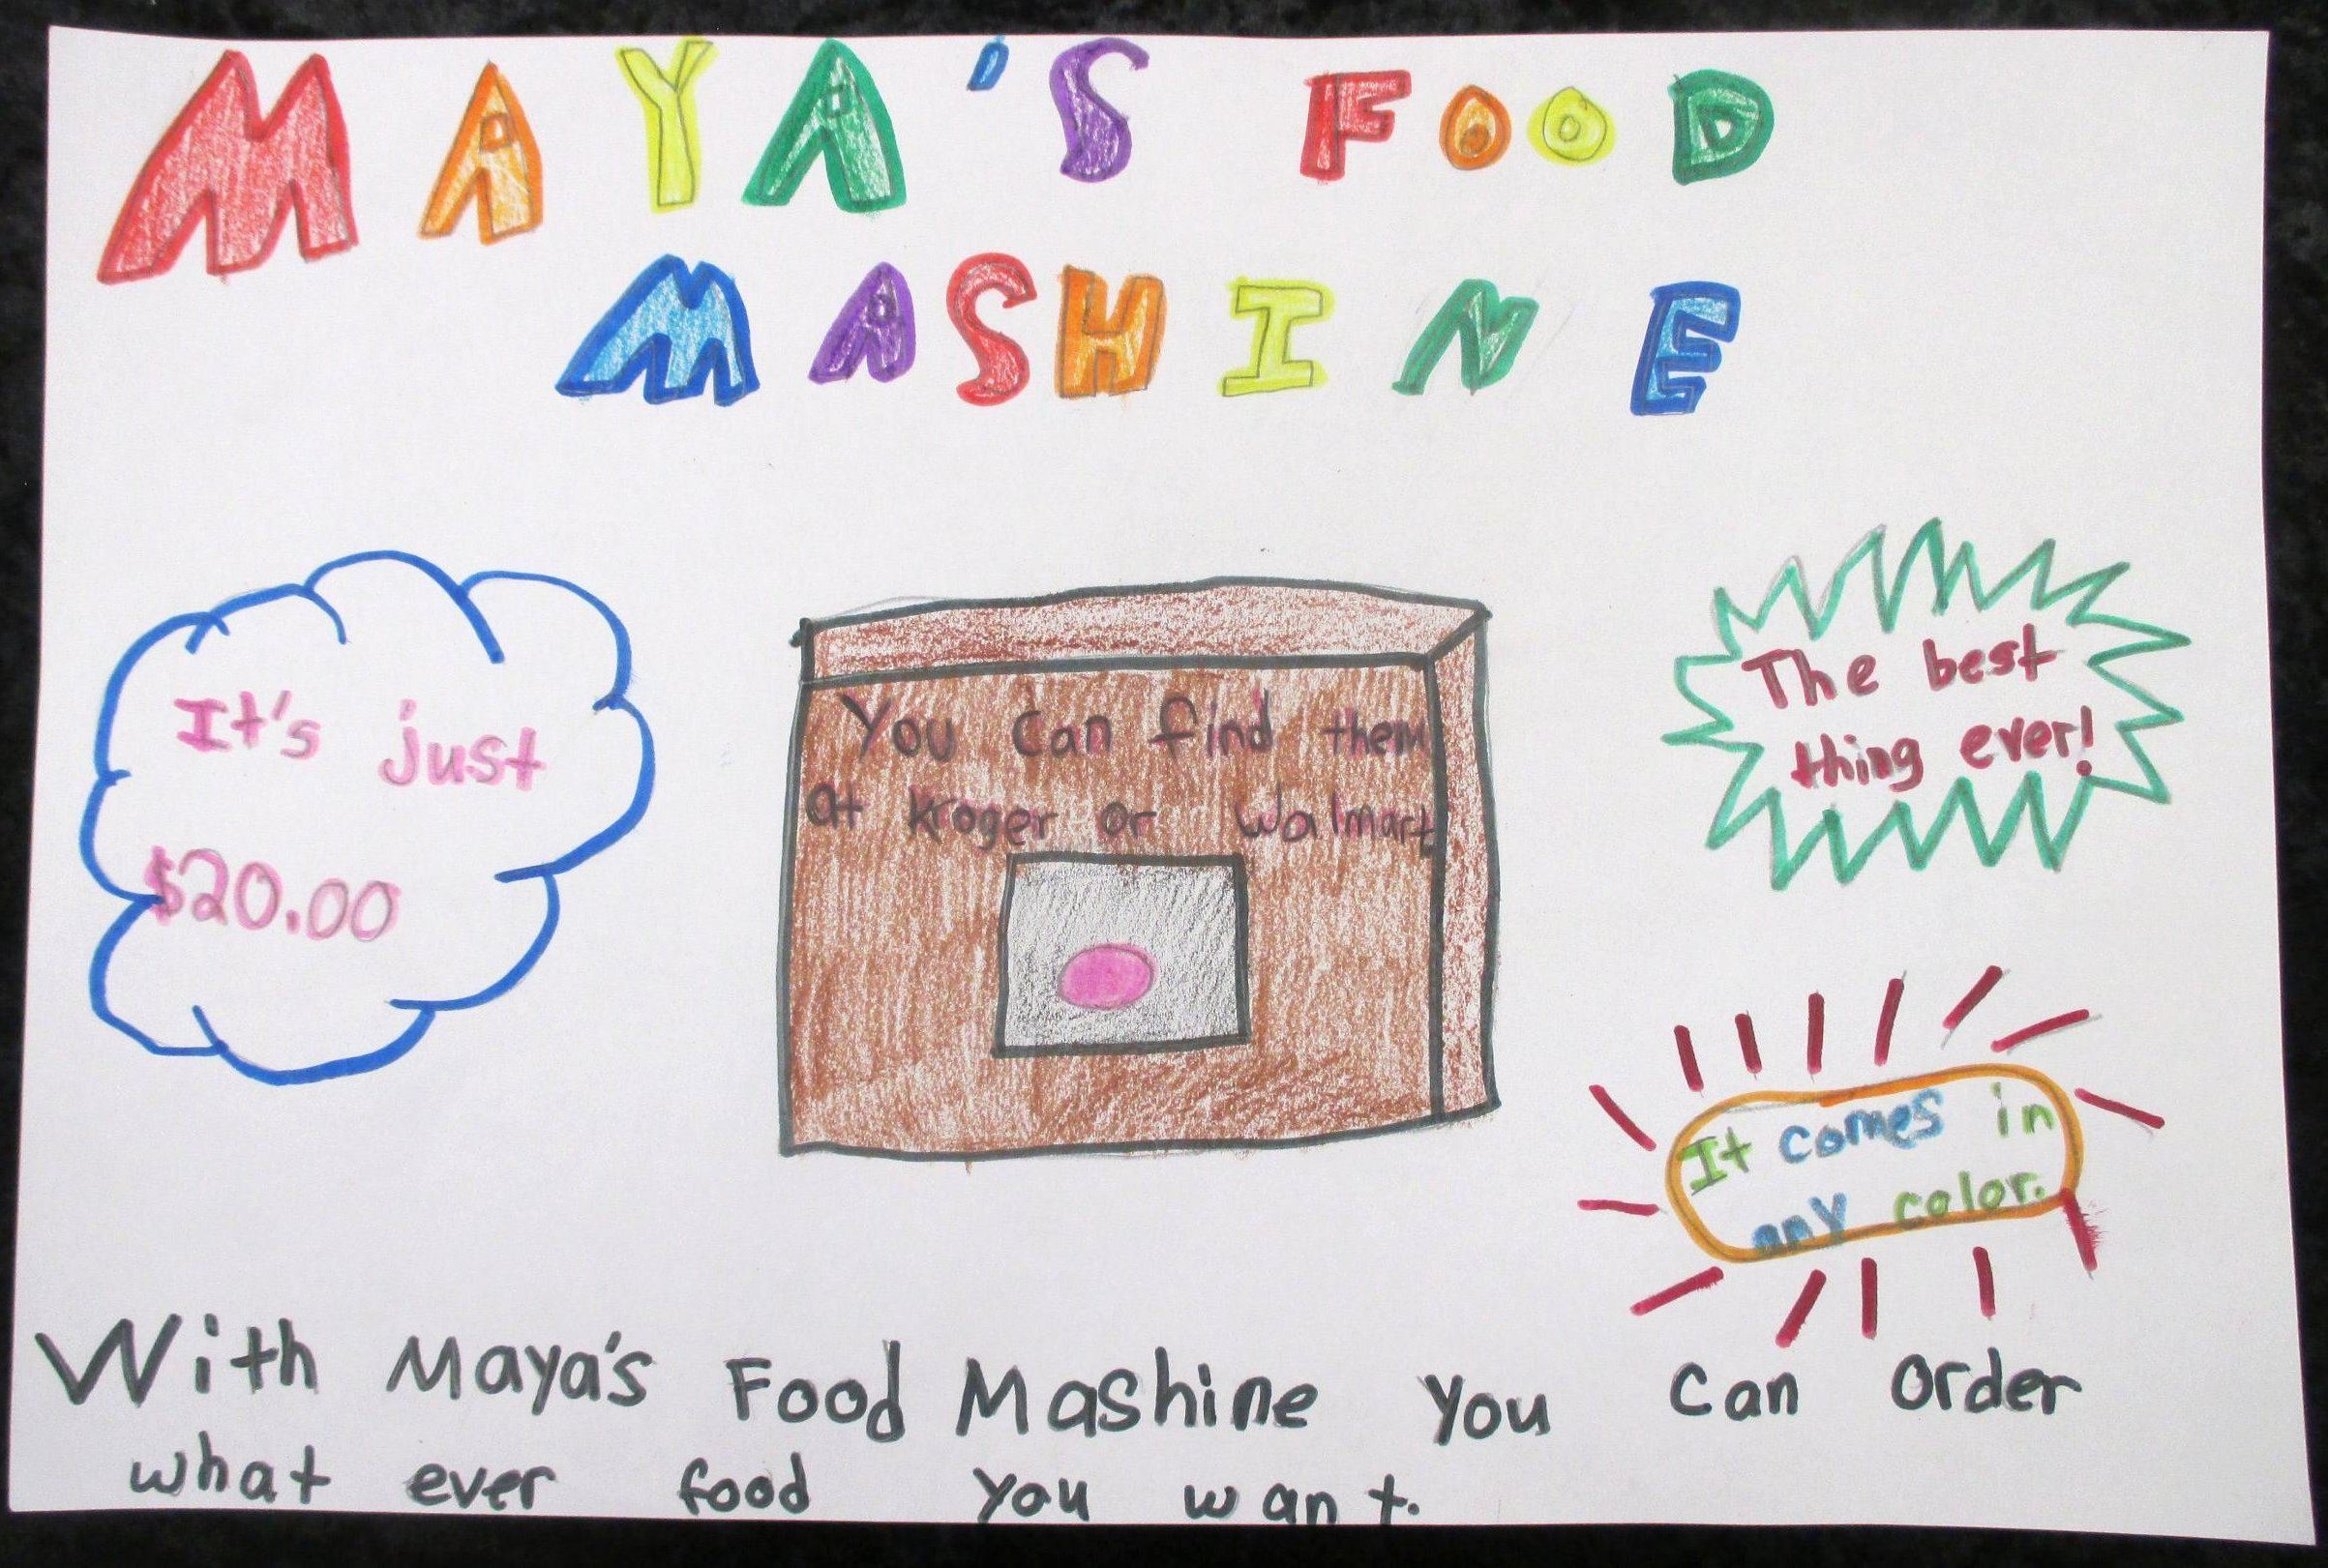 MAYA'S FOOD
MASHINE
It's just
$20.00
You can find them
at kroger or Walmart
The best
thing ever!
It comes in
any color.
With Maya's Food Mashine you can order
what ever food you want.